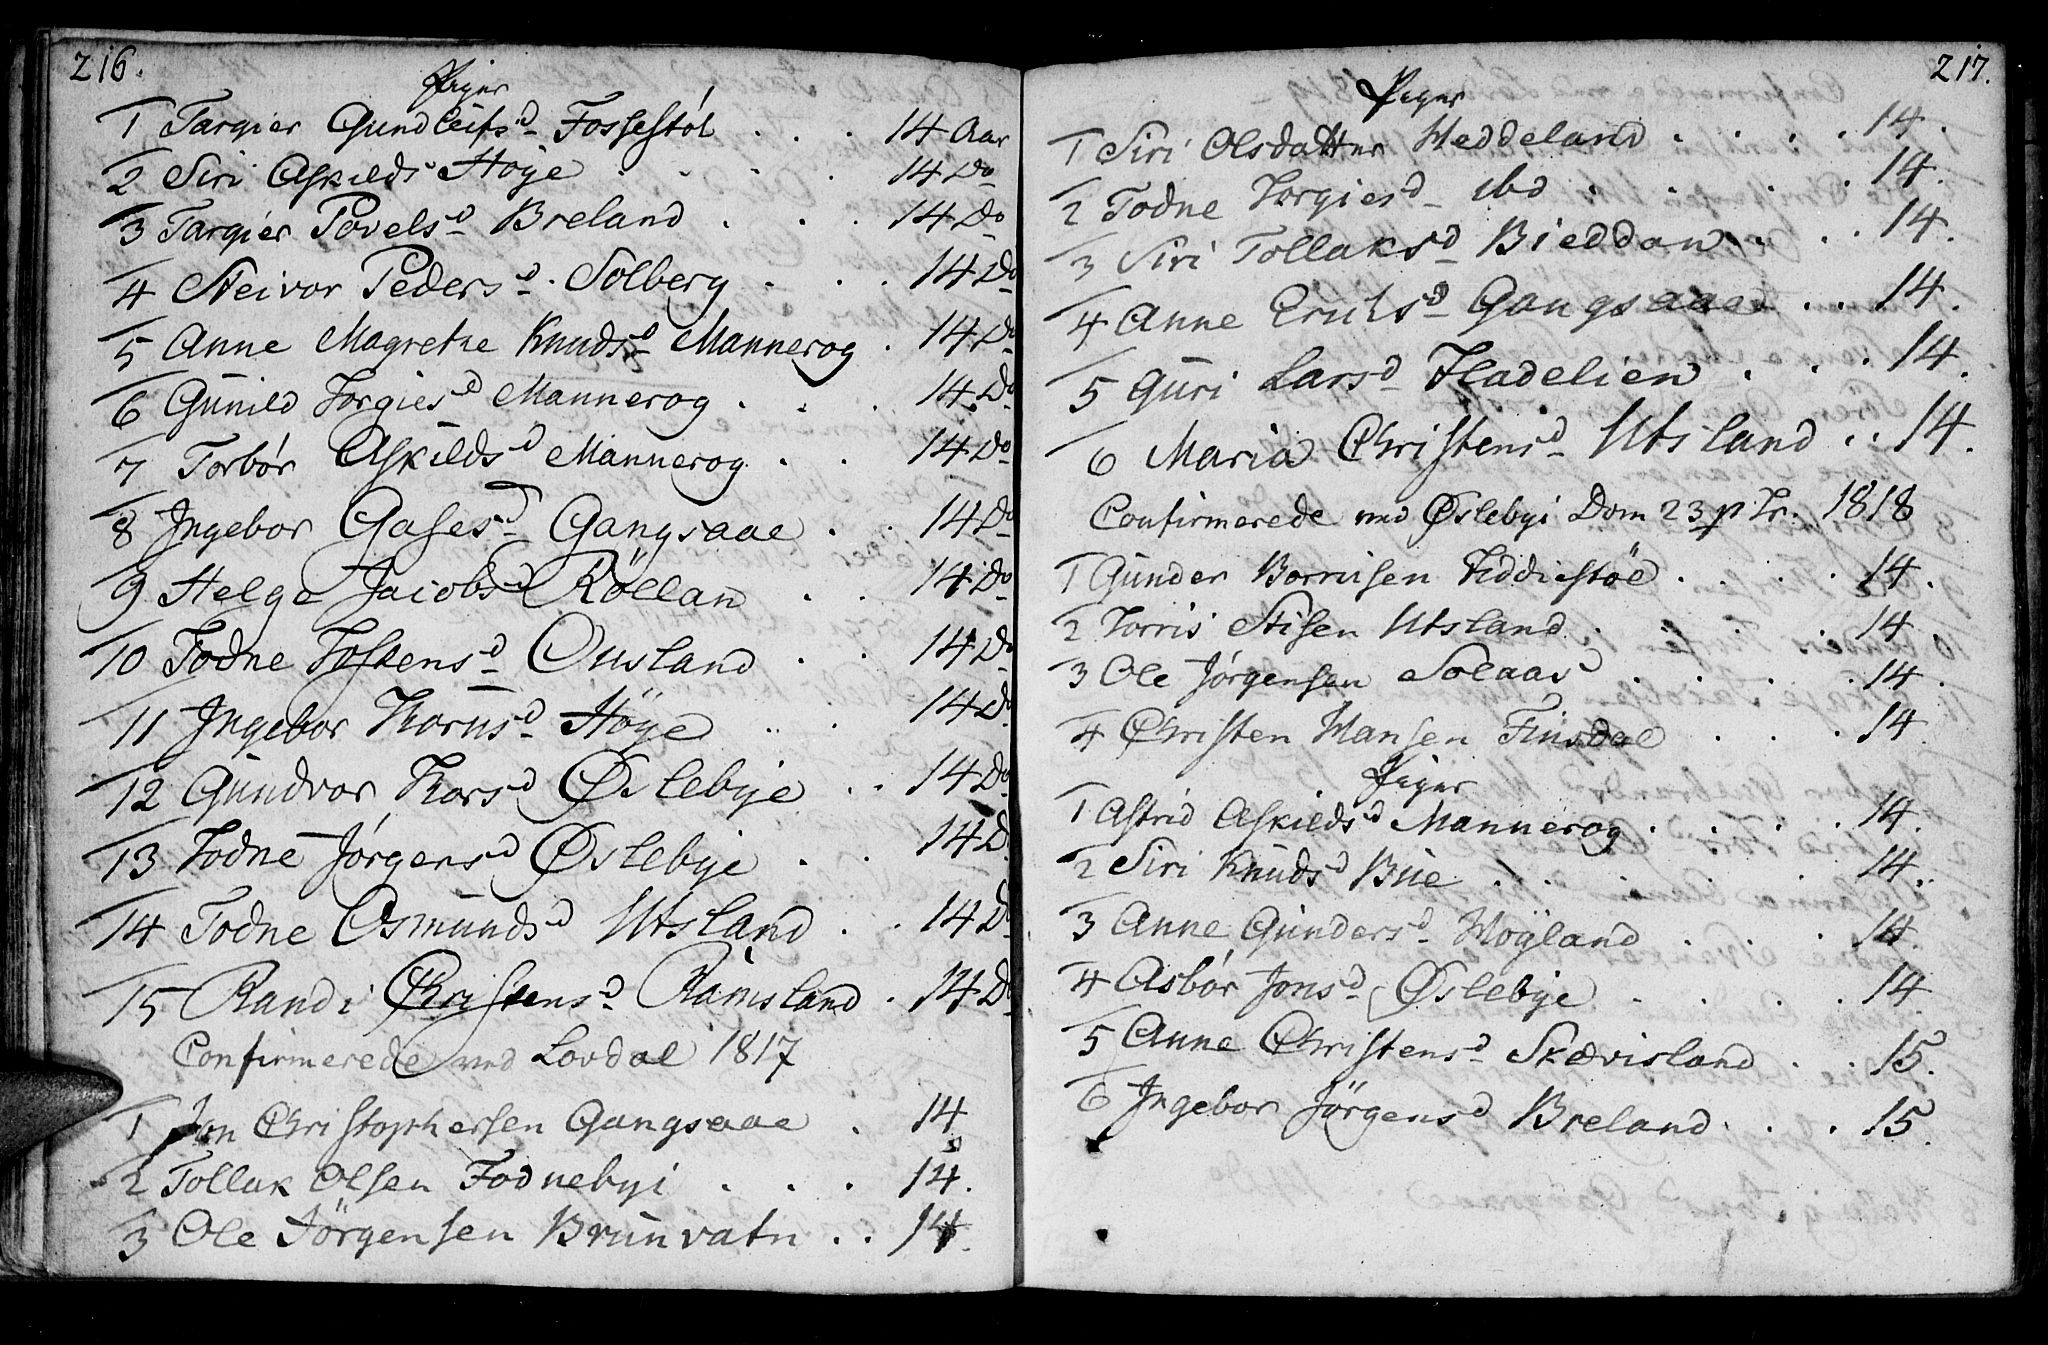 216.
Piger
1 Targier Gundleifsd Fossestøl . . . 14 Aar
2 Siri Askildsd Høÿe . . . . 14 Do
3 Targier Povelsd Breland . . . 14 Do
4 Steivor Pedersd. Solberg . . . 14 Do
5 Anne Magrethe Knudsd Mannerog . 14 Do
6 Gunild Torgiesd Mannerog . . . 14 Do
7 Torbør Askildsd Mannerog . . 14 Do
8 Ingebor Gasesd Gangsaae . . 14 Do
9 Helge Jacobsd Röllan . . 14 Do
10 Todne Tostensd Ousland . . 14 Do
11 Ingebor Thorsd Höÿe . . 14 Do
12 Gundvor Thorsd Øslebye . . 14 Do
13 Todne Jørgensd Øslebye . . 14 Do
14 Todne Osmundsd Utsland . . 14 Do
15 Randi Christensd Ramsland . 14 Do
Confirmerede ved Lovdal 1817
1 Jon Christophersen Gangsaae . 14
2 Tollak Olsen Fodnebyi . . . 14.
3 Ole Jörgensen Brunvatn . . 14.
217.
Piger
1 Siri Olsdatter Heddeland . . . . 14.
2 Todne Torgiesd ibd . . . . 14.
3 Siri Tollaksd Bieddan . . . 14.
4 Anne Eriksd Gangsaae . . 14.
5 Guri Larsd Hadelien . . . 14.
6 Maria Christensd Utsland . . 14.
Confirmerede ved Øslebyi Dom 23 p Tr. 1818
1 Gunder Borrusen Kiddiestøl . . . . 14.
2 Torris Stisen Utsland . . . 14
3 Ole Jørgensen Solaas . . . . 14.
4 Christen Hansen Finsdal . . . 14
Piger
1 Astrid Askildsd Mannerog . . . . 14.
2 Siri Knudsd Bue . . . . 14.
3 Anne Gundersd Höÿland . . . 14.
4 Asbør Jonsd Øslebye . . . . 14
5 Anne Christensd Skævisland . . 15.
6 Ingebor Jörgensd Breland . . . 15.